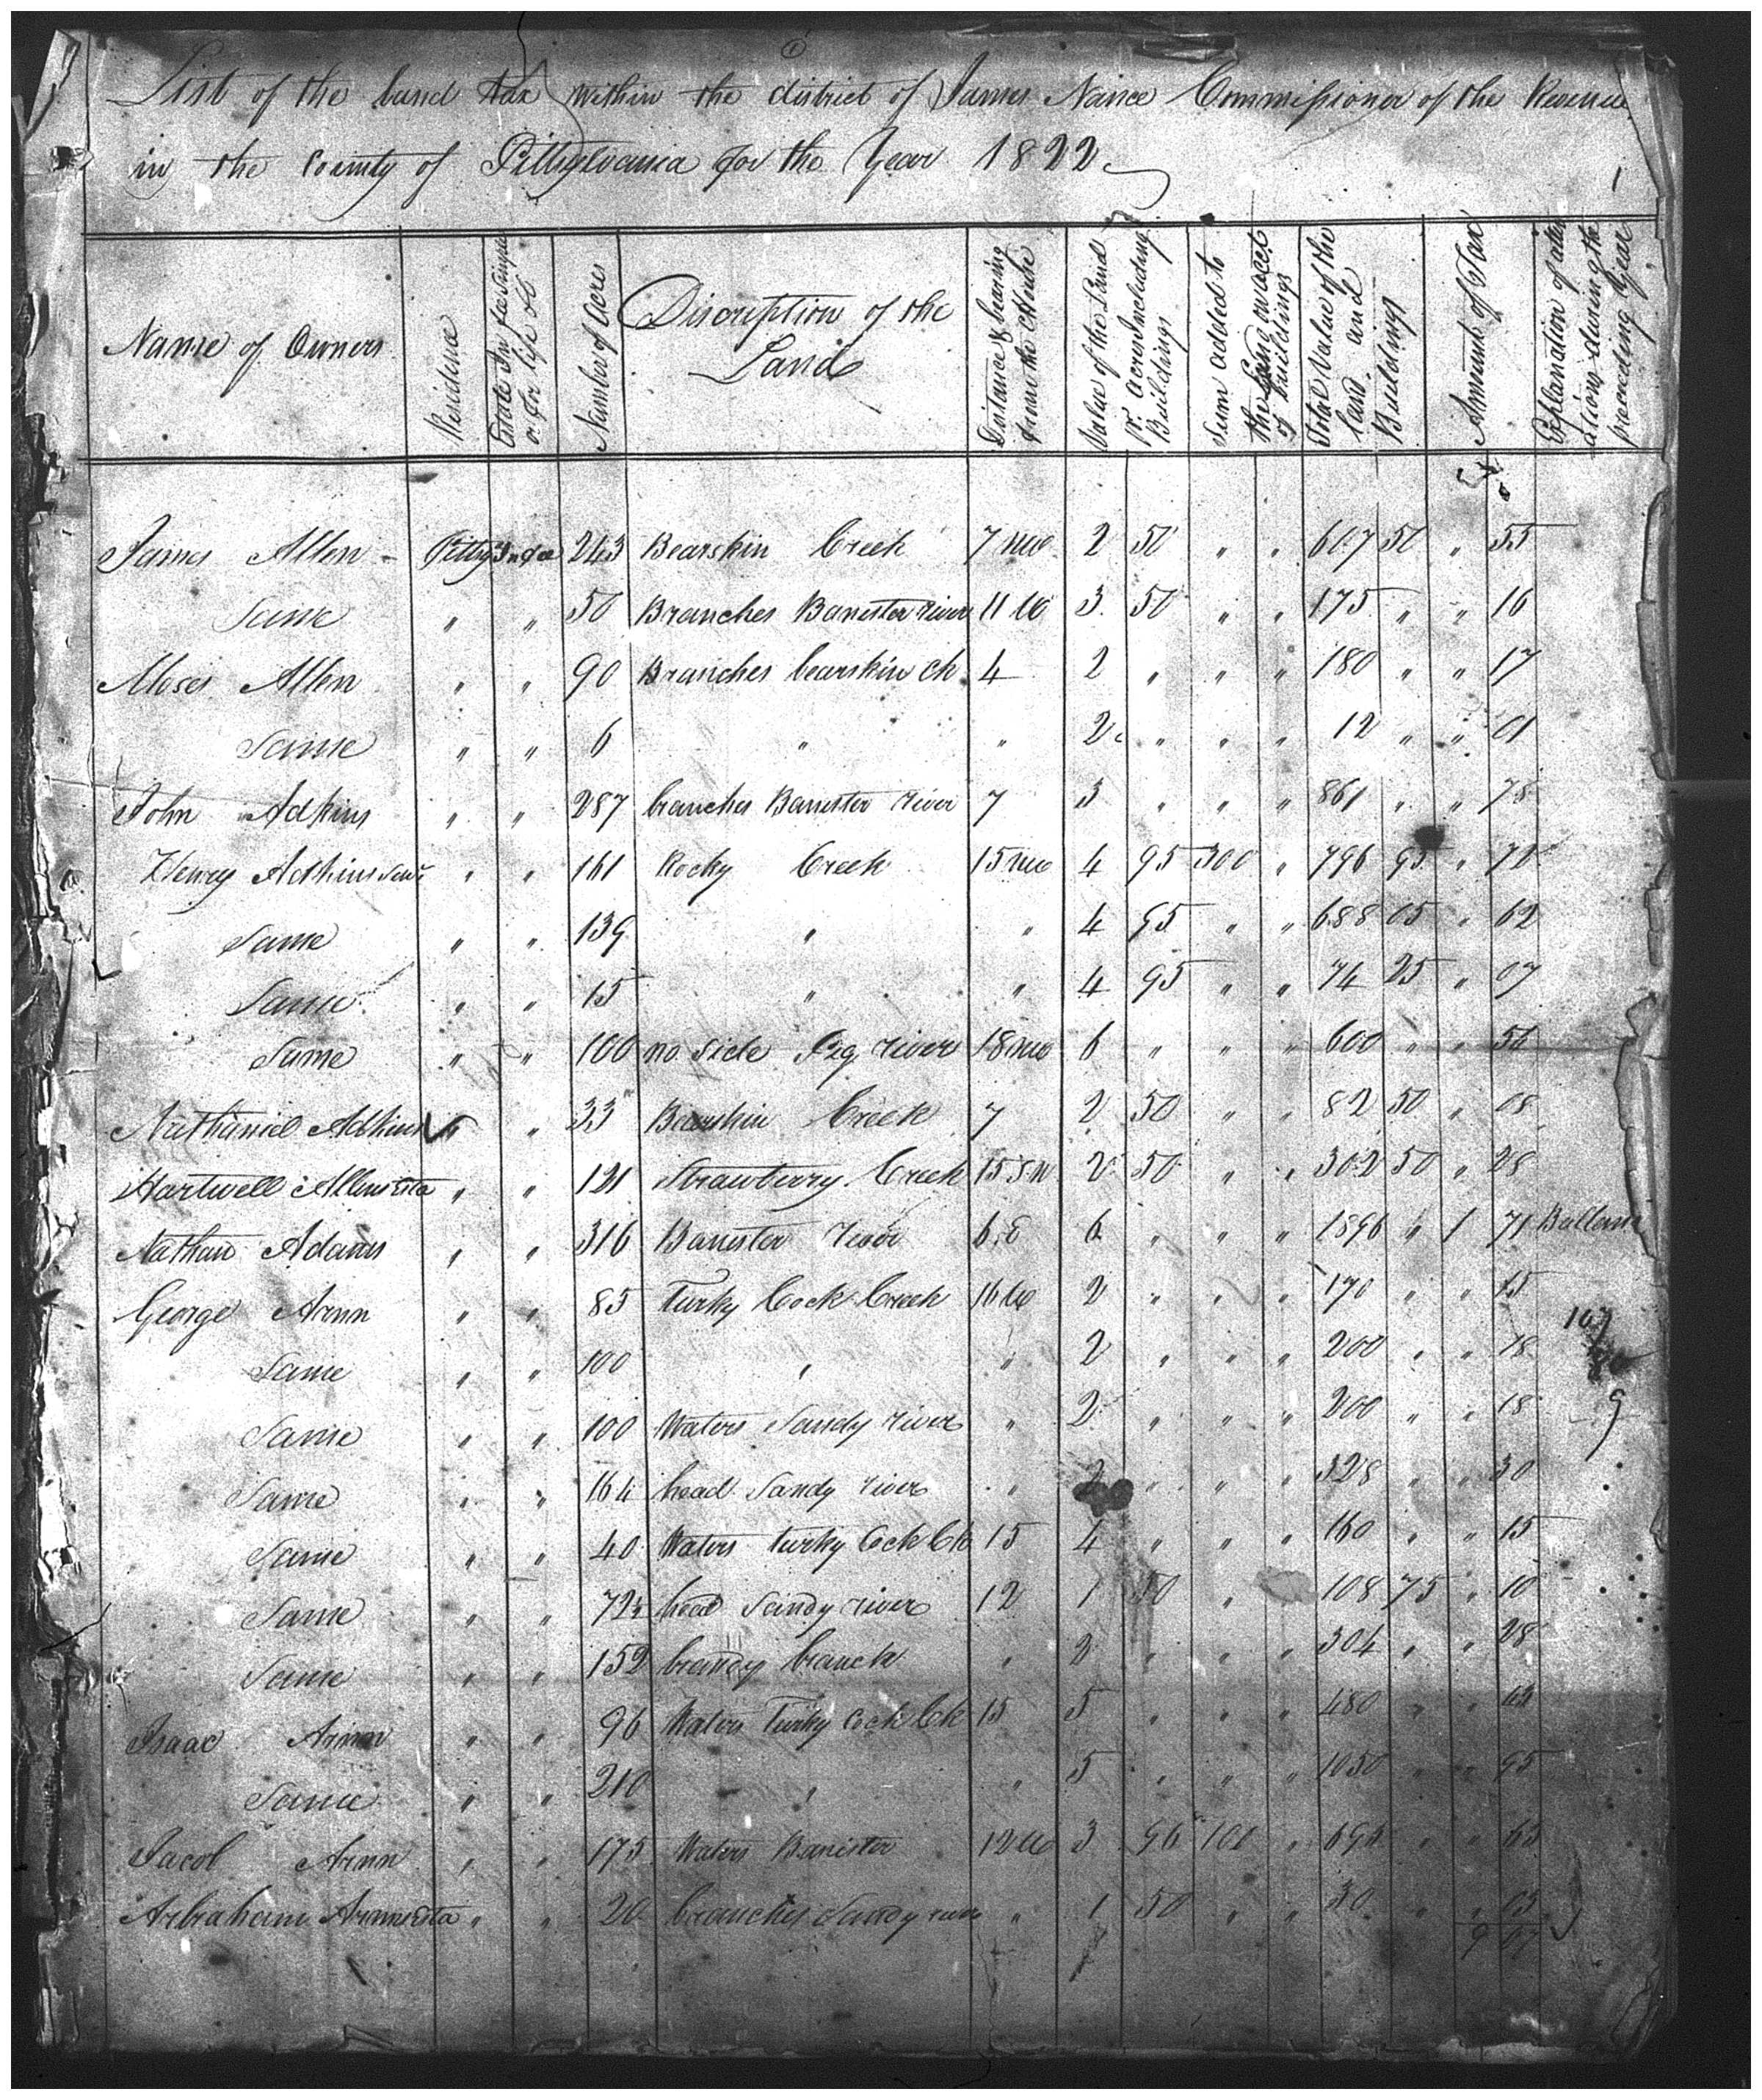 List of the land tax within the district of James Nance Commissioner of the Revenue
in the County of Pittsylvania for the Year 1822
1
Name of Owners
Residence
Estate In fee simple
or for life &c
Number of Acres
Discription of the
Land
Distance & bearing
from the C House
Value of the Land
pr. acre including
Buildings
Sum added to
the Land on acct
of buildings
Total Value of the
land and
Buildings
Amount of Tax
Explanation of alter
ations during the
preceeding Year
James Allen Pittsy In fee 243 Bearskin Creek 7 NW 2 50 " " 607 50 " 55
Same " " 50 Branches Banister river 11 W 3 50 " " 175 " " 16
Moses Allen " " 90 Branches bearskin Ck 4 2 " " " 180 " " 17
Same " " 6 " " 2 " " " 12 " " 01
John Adkins " " 287 branches Banister river 7 3 " " " 861 " " 78
Henry Adkins Senr " " 161 Rocky Creek 15 NW 4 95 300 " 796 95 " 72
Same " " 139 " " 4 95 " " 688 05 " 62
Same " " 15 " " 4 95 " " 74 25 " 07
Same " " 100 no side Pig river 18 NW 6 " " " 600 " " 56
Nathaniel Adkins " " 33 Bearskin Creek 7 2 50 " " 82 50 " 08
Hartwell Allens Esta " " 121 Strawberry Creek 15 SW 2 50 " " 302 50 " 28
Nathan Adams " " 316 Banister river 6 E 6 " " " 1896 " 1 71
George Arnn " " 85 Turky Cock Creek 16 W 2 " " " 170 " " 15
107
Same " " 100 " " 2 " " " 200 " " 18
Same " " 100 Waters Sandy river " 2 " " " 200 " " 18 9
Same " " 164 head Sandy river " 2 " " " 328 " " 30
Same " " 40 Waters turky Cock Ck 15 4 " " " 160 " " 15
Same " " 72½ head Sandy river 12 1 50 " 108 75 " 10
Same " " 152 brandy branch " 2 " " " 304 " " 28
Isaac Arnn " " 96 Waters Turky Cock Ck 15 5 " " " 480 " " 43
Same " " 210 " " 5 " " " 1050 " " 95
Jacob Arnn " " 175 Waters Banister 12 W 3 96 100 " 693 " " 63
Arbraham Arnns Esta " " 20 branches Sandy river " 1 50 " " 30 " " 03
9 67